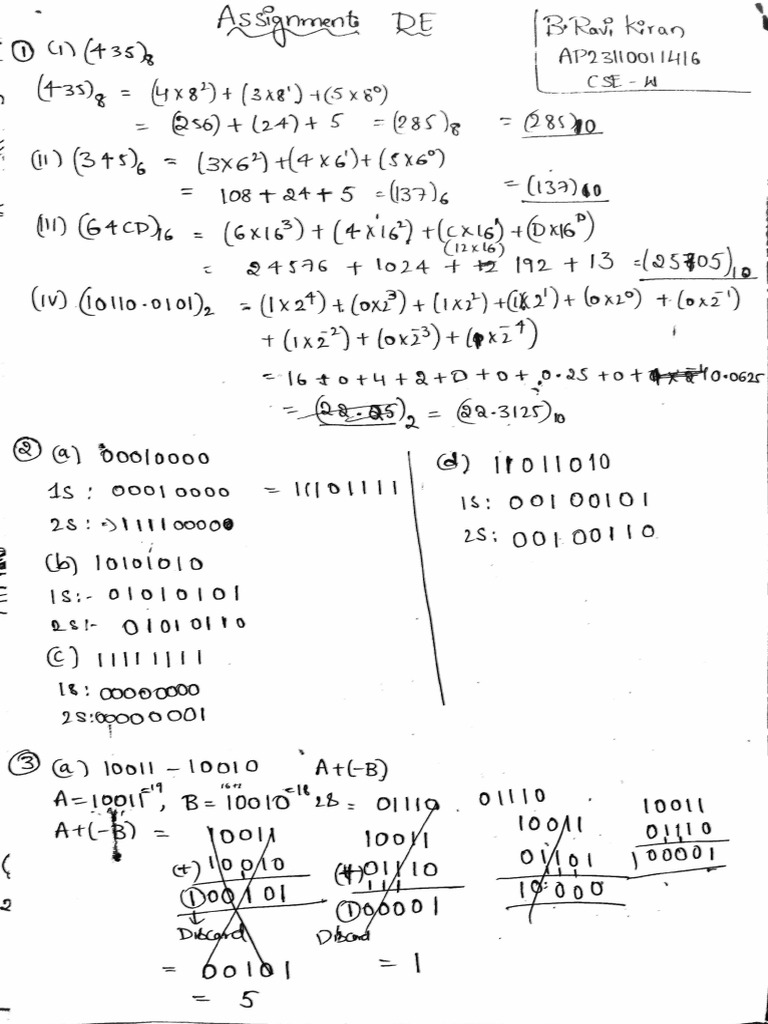 Assignment DE
B. Ravi Kiran
AP23110011416
CSE - W
① (i) (435)₈
(435)₈ = (4 x 8²) + (3 x 8¹) + (5 x 8⁰)
= (256) + (24) + 5 = (285)₈ = (285)₁₀
(ii) (345)₆ = (3x6²) + (4 x 6¹) + (5x6⁰)
= 108 + 24 + 5 = (137)₆ = (137)₁₀
(iii) (64CD)₁₆ = (6x16³) + (4x16²) + (Cx16¹) + (Dx16⁰)
(12 x 16)
= 24576 + 1024 + 192 + 13 = (25805)₁₀
(iv) (10110.0101)₂ = (1x2⁴) + (0x2³) + (1x2²) + (1x2¹) + (0x2⁰) + (0x2⁻¹)
+ (1x2⁻²) + (0x2⁻³) + (1x2⁻⁴)
= 16 + 0 + 4 + 2 + 0 + 0 + 0.25 + 0 + 0.0625
= (22.25)₂ = (22.3125)₁₀
② (a) 00010000
1s : 00010000 = 11101111
2s : => 11110000
(b) 10101010
1s :- 01010101
2s :- 01010110
(c) 11111111
1s : 00000000
2s : 00000001
(d) 11011010
1s : 00100101
2s : 00100110
③ (a) 10011 - 10010 A+(-B)
A = 10011 = 19, B = 10010 = 18 2s = 01110 01110
A+(-B) =
10011
(+) 10010
① 00101
Discard
= 00101
= 5
10011
(+) 01110
① 00001
Discard
= 1
10011
01101
10000
10011
01110
1 00001